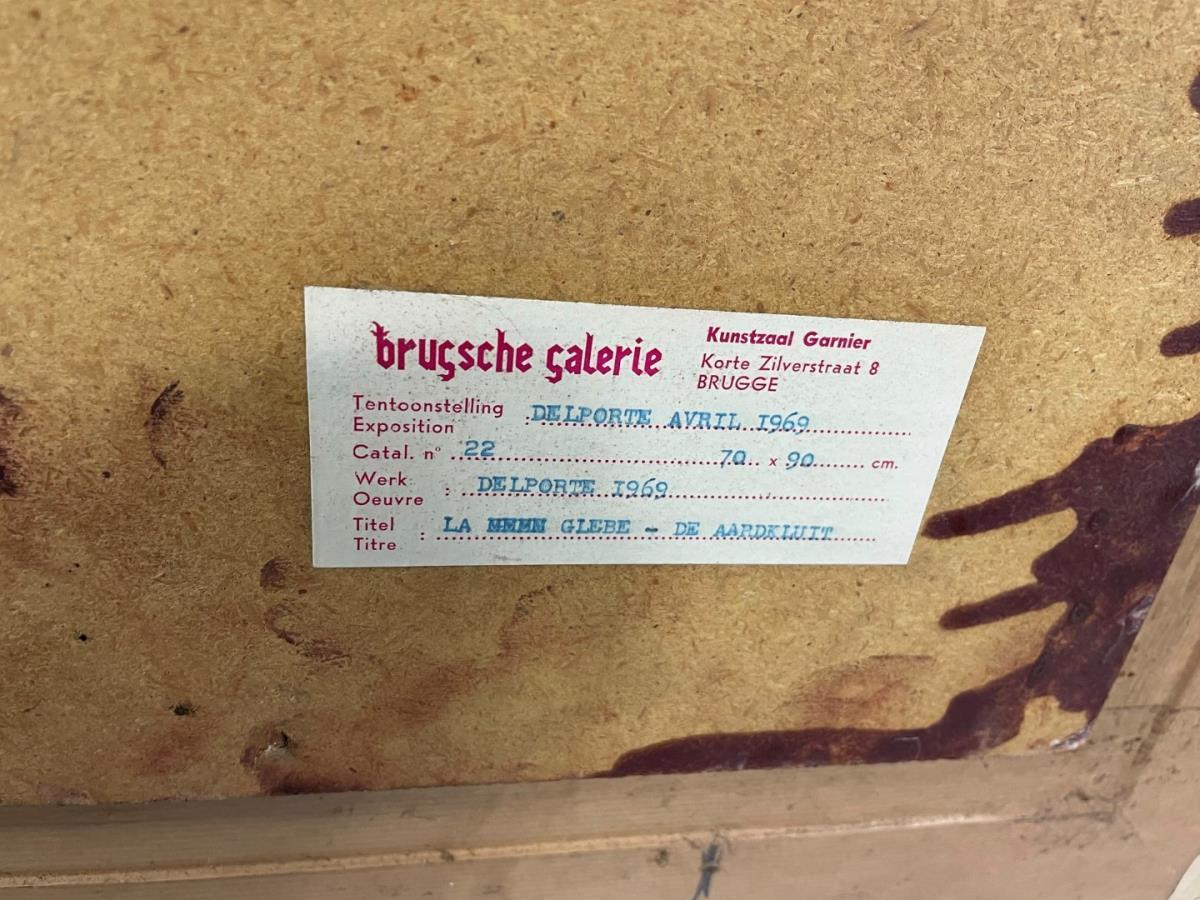 brugsche galerie
Kunstzaal Garnier
Korte Zilverstraat 8
BRUGGE
Tentoonstelling
Exposition : DELPORTE AVRIL 1969
Catal. n° 22 70 x 90 cm.
Werk
Oeuvre : DELPORTE 1969
Titel
Titre : LA GLEBE - DE AARDKLUIT